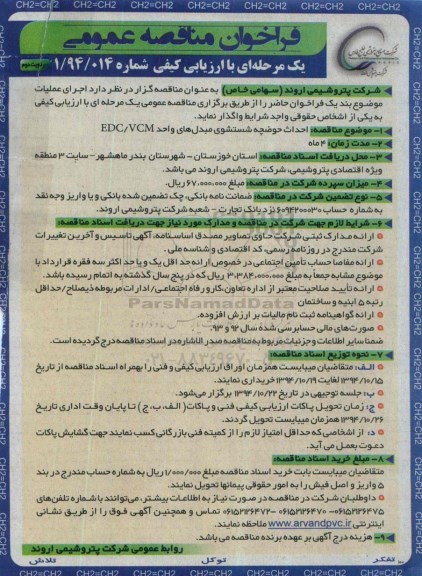 فراخوان مناقصه عمومی
یک مرحله‌ای با ارزیابی کیفی شماره ۱/۹۴/۰۱۴
شرکت پتروشیمی اروند (سهامی خاص) به عنوان مناقصه گزار در نظر دارد اجرای عملیات
موضوع بند یک فراخوان حاضر را از طریق برگزاری مناقصه عمومی یک مرحله ای با ارزیابی کیفی
به یکی از اشخاص حقوقی واجد شرایط واگذار نماید.
۱- موضوع مناقصه: احداث حوضچه شستشوی مبدل‌های واحد EDC/VCM
۲- مدت زمان: ۴ ماه
۳- محل دریافت اسناد مناقصه: استان خوزستان - شهرستان بندر ماهشهر - سایت ۳ منطقه
ویژه اقتصادی پتروشیمی، شرکت پتروشیمی اروند می باشد.
۴- میزان سپرده شرکت در مناقصه: مبلغ ۶۷،۰۰۰،۰۰۰ ریال.
۵- نوع تضمین شرکت در مناقصه: ضمانت نامه بانکی، چک تضمین شده بانکی و یا واریز وجه نقد
به شماره حساب ۶۰۹۴۲۰۰۰۳۰ نزد بانک تجارت - شعبه شرکت پتروشیمی اروند.
۶- شرایط لازم جهت شرکت در مناقصه و مدارک مورد نیاز جهت دریافت اسناد مناقصه:
ارائه مدارک ثبتی شرکت حاوی تصاویر مصدق اساسنامه، آگهی تأسیس و آخرین تغییرات
شرکت مندرج در روزنامه رسمی، کد اقتصادی و شناسه ملی.
ارائه مفاصا حساب تأمین اجتماعی در خصوص ارائه حداقل یک و یا حداکثر سه فقره قرارداد با
موضوع مشابه جمعاً به مبلغ ۳،۳۸۴،۰۰۰،۰۰۰ ریال که در پنج سال گذشته به اتمام رسیده باشد.
ارائه تأیید صلاحیت معتبر از اداره تعاون، کار و رفاه اجتماعی / ادارات مربوطه ذیصلاح / حداقل
رتبه ۵ ابنیه و ساختمان
ارائه گواهینامه ثبت نام مالیات بر ارزش افزوده.
صورت‌های مالی حسابرسی شده سال ۹۲ و ۹۳.
ضمنا سایر اطلاعات و جزئیات مربوط به مناقصه صدر الاشاره در اسناد مناقصه درج گردیده است.
۷- نحوه توزیع اسناد مناقصه:
الف: متقاضیان میبایست همزمان اوراق ارزیابی کیفی و فنی را بهمراه اسناد مناقصه از تاریخ
۱۳۹۴/۱۰/۱۵ لغایت ۱۳۹۴/۱۰/۱۹ خریداری نمایند.
ب: جلسه توجیهی در تاریخ ۱۳۹۴/۱۰/۲۲ برگزار می‌شود.
ج: زمان تحویل پاکات ارزیابی کیفی فنی و پاکات (الف، ب، ج) تا پایان وقت اداری تاریخ
۱۳۹۴/۱۰/۲۶ همزمان میبایست تحویل گردند.
د: از اشخاصی که حداقل امتیاز لازم را از کمیته فنی بازرگانی کسب نمایند جهت گشایش پاکات
دعوت بعمل می آید.
۸- مبلغ خرید اسناد مناقصه:
متقاضیان میبایست بابت خرید اسناد مناقصه مبلغ ۱/۰۰۰/۰۰۰ ریال به شماره حساب مندرج در بند
۵ واریز و اصل فیش را به امور حقوقی پیمانها تحویل نمایند.
داوطلبان شرکت در مناقصه در صورت نیاز به اطلاعات بیشتر، می‌توانند با شماره تلفن‌های
۰۶۱۵۲۱۲۶۴۷۵-۰۶۱۵۲۱۲۶۴۷۰-۰۶۱۵۲۱۲۶۴۷۲ تماس و همچنین آگهی فوق را از طریق نشانی
اینترنتی www.arvandpvc.ir ملاحظه نمایند.
۹- هزینه درج آگهی بر عهده برنده مناقصه می باشد.
روابط عمومی شرکت پتروشیمی اروند
تفکر توکل تلاش
ParsNamadData